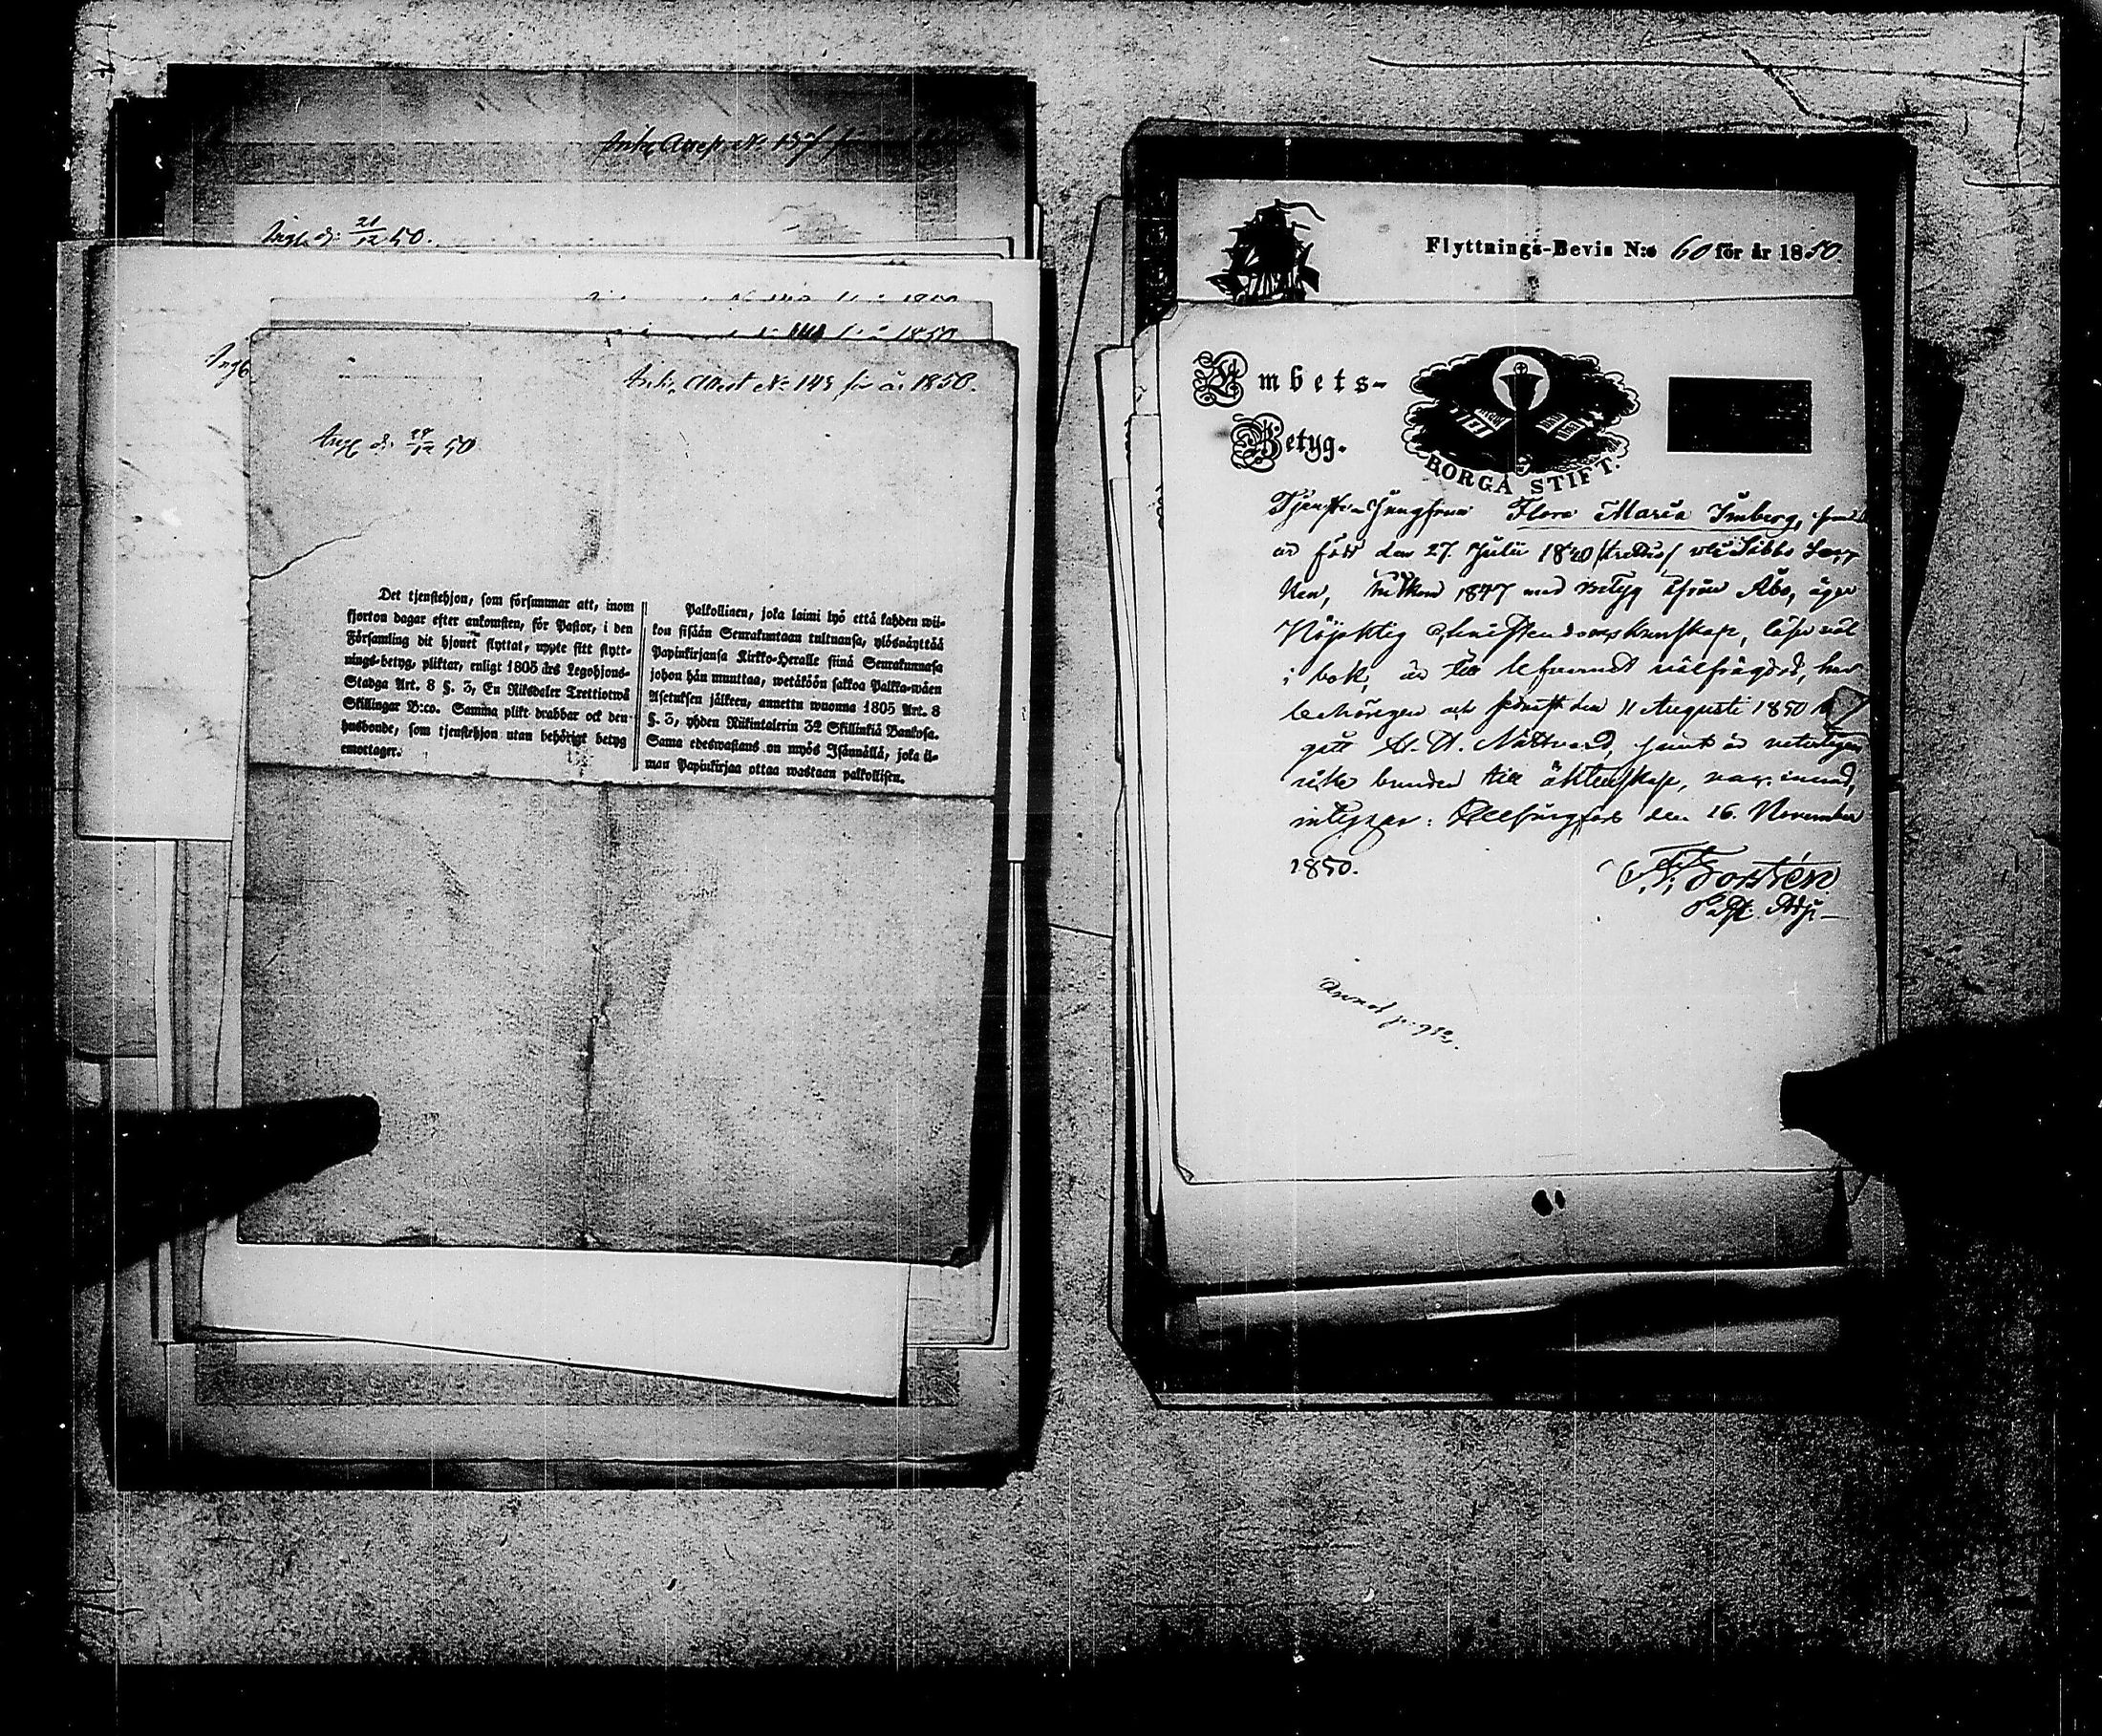 Ank. Attest No 137 för
Ingl. d: 21/12 50.
1850
1850
Ank. Attest No 143 för år 1850.
Ingl d: /12 50
Det tjenstehjon, som försummar att, inom
fjorton dagar efter ankomsten, för Pastor, i den
Församling dit hjonet flyttat, uppte sitt flytt-
nings-betyg, pliktar, enligt 1805 års Legohjons-
Stadga Art. 8 §. 3, En Riksdaler Trettiotwå
Skillingar B:co. Samma plikt drabbar ock den
husbonde, som tjenstehjon utan behörigt betyg
emottager.
Palkollinen, joka laimi lyö että kahden wii-
kon sisään Seurakuntaan tultuansa, ylösnäyttää
Papinkirjansa Kirkko-Heralle siinä Seurakunnasa
johon hän muuttaa, wetäköön sakkoa Palkka-wäen
Asetuksen jälkeen, annettu wuonna 1805 Art. 8
§. 3, yhden Riikintalerin 32 Skillinkiä Bankosa.
Sama edeswastaus on myös Isännällä, joka il-
man Papinkirjaa ottaa wastaan palkollisen.
Flyttnings-Bevis N:o 60 för år 1850
Embets-
Betyg.
BORGÅ STIFT.
Tjenste-Jungfrun Flora Maria Imberg, som
är född den 27. Julii 1820 uti Sibbo Soc
ken, 1847 med betyg ifrån Åbo, äger
Nöjaktig Christendomskunskap, läser väl
i bok, är till lefvernet välfrägdad, har
behörigen och sednast den 11 Augusti 1850
gått H. H. Nattvard, samt är veterligen
icke bunden till äktenskap,
intygar: Helsingfors den 16. November
1850.
Forstén
Past. Adj.